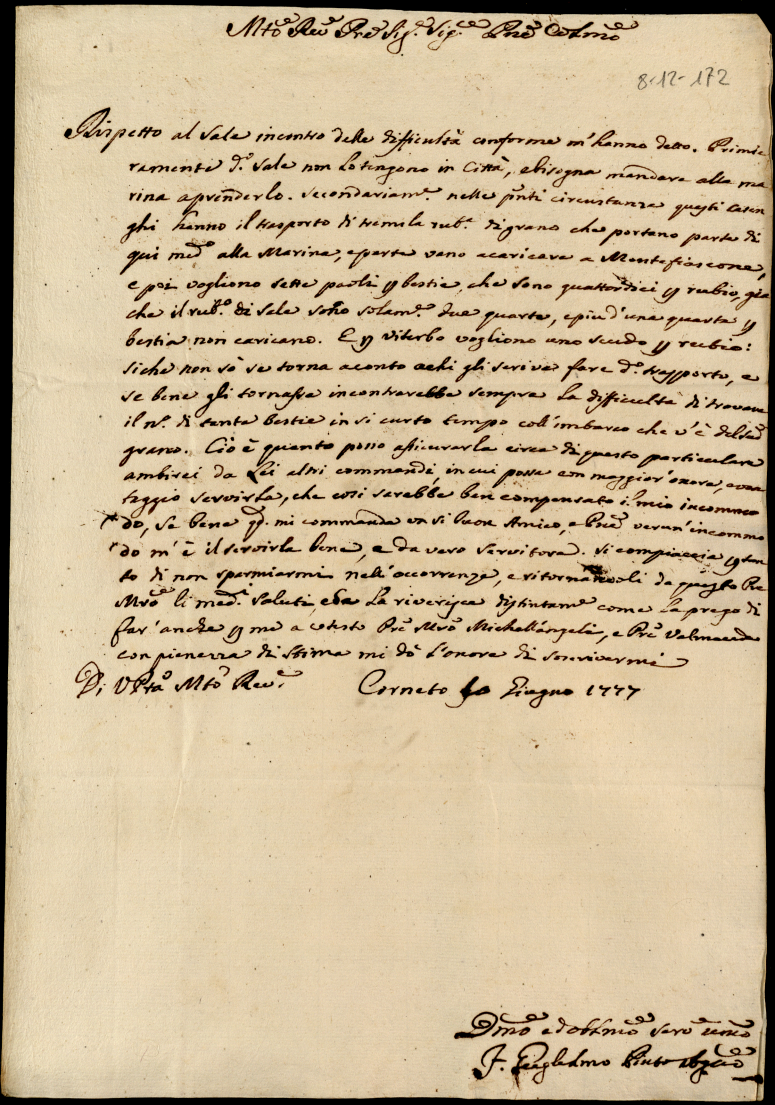 Mto Rev Pre Sig. Sig. Pne Colmo
8-12-172
Rispetto al sale incontro delle difficultà conforme m'hanno detto. Prima
ramente d.o sale non lo tengono in Città, e bisogna mandare alla ma
rina a prenderlo. Secondariam.e nelle pnti circustanze questi
hanno il trasporto di tremila rub.a di grano che portano parte di
qui med.o alla Marina, e parte vano a caricare a Montefiascone,
e poi vogliono sette paoli p bestia, che sono quattordici p rubio, già
che il rub.o di sale sono solam.e due quarte, e piu d'una quarta p
bestia non caricano. E p Viterbo vogliono uno scudo p rubio:
siche non sò se torna a conto a chi gli scrive fare d.o trasporto, e
se bene gli tornasse incontrarebbe sempre la difficultà di trovare
il n.o di tante bestie in si curto tempo coll'imbarco che v'è del
grano. Ciò è quanto posso assicurarla circa di questo particulare
ambirei da Lei altri commandi, in cui possa con maggior'onore, e van
taggio servirla, che cosi serebbe ben compensato il mio incommo
do, se bene qd. mi commanda un si buon Amico, e Pne verun'incommo
do m'è il servirla bene, e da vero servitore. Si compiaccia p tan
to di non sparmiarmi nell'occorrenze, e ritornandoli da questo Pre
Mro li med.i saluti, e la riverisce distintam.e come la prego di
far'anche p me a cotesto Pre Mro Michell'angeli, e Pre Valmanede
con pienezza di stima mi dò l'onore di scrivermi
Di V Pta Mto Rev.a Corneto 10 Giugno 1777
Dmo ed obblmo servo vero
F. Guglielmo